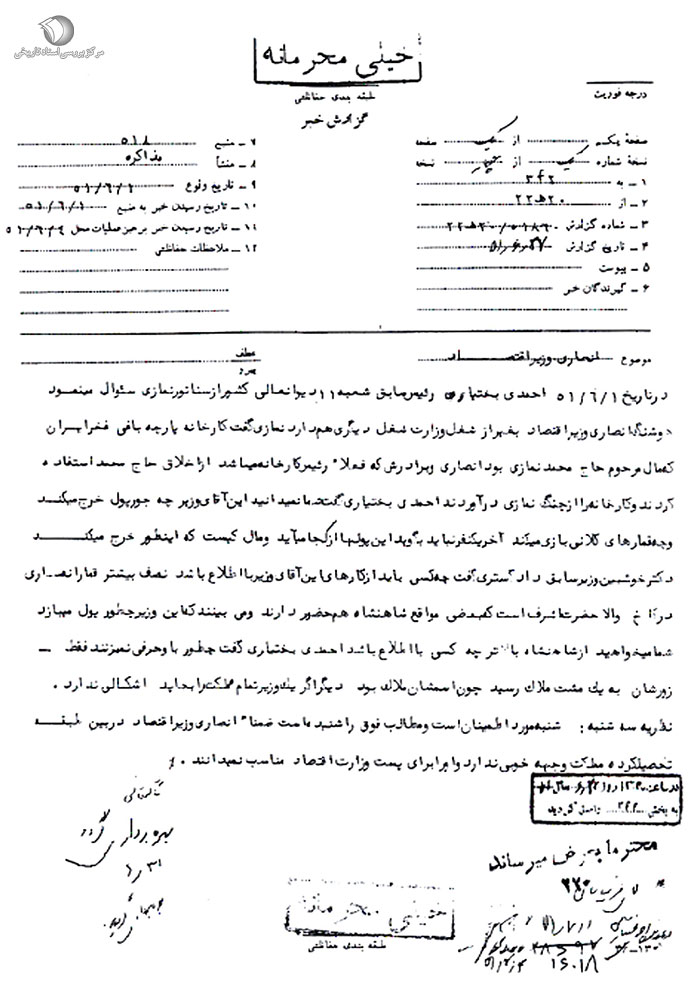 مرکز بررسی اسناد تاریخی
خیلی محرمانه
طبقه بندی حفاظتی
گزارش خبر
درجه فوریت
صفحهٔ یک از یک صفحه
نسخهٔ شماره یک از چهار نسخه
۱ ـ به ۳۴۲
۲ ـ از ۲۰ ه‍ ۲۲
۳ ـ شماره گزارش
۴ ـ تاریخ گزارش
۵ ـ پیوست
۶ ـ گیرندگان خبر
۷ ـ منبع ۵۱۸
۸ ـ منشأ مذاکره
۹ ـ تاریخ وقوع ۵۱/۶/۱
۱۰ ـ تاریخ رسیدن خبر به منبع ۵۱/۶/۱
۱۱ ـ تاریخ رسیدن خبر برهبر عملیات محل ۵۱/۶/۴
۱۲ ـ ملاحظات حفاظتی
موضوع انصاری وزیر اقتصاد
عطف
درتاریخ ۵۱/۶/۱ احمدی بختیاری رئیس سابق شعبه ۱۱ دیوانعالی کشور از سناتور نمازی سئوال مینمود
هوشنگ انصاری وزیر اقتصاد بغیر از شغل وزارت شغل دیگری هم دارد نمازی گفت کارخانه پارچه بافی فخر ایران
که مال مرحوم حاج محمد نمازی بود انصاری و برادرش که فعلاً رئیس کارخانه میباشد از اخلاق حاج محمد استفاده
کردند و کارخانه را از چنگ نمازی درآوردند احمدی بختیاری گفت شما نمیدانید این آقای وزیر چه جور پول خرج میکند
وچه قمارهای کلانی بازی میکند آخر یکنفر نباید بگوید این پولها از کجا میآید ومال کیست که اینطور خرج میکند
دکتر خوشبین وزیر سابق دادگستری گفت چه کسی باید از کارهای این آقای وزیر با اطلاع باشد نصف بیشتر قمار انصاری
درکاخ والاحضرت اشرف است که بعضی مواقع شاهنشاه هم حضور دارند ومی بینند که این وزیر چطور پول میبازد
شما میخواهید از شاهنشاه بالاتر چه کسی با اطلاع باشد احمدی بختیاری گفت چطور با وحرفی نمیزنند فقط ـ
زورشان به یک مشت ملاک رسید چون اسمشان ملاک بود دیگر اگر یک وزیر تمام مملکت را بچاپد اشکالی ندارد .
نظریه سه شنبه : شنبه مورد اطمینان است ومطالب فوق را شنیده است ضمناً انصاری وزیر اقتصاد دربین طبقه
تحصیلکرده مملکت وجهه خوبی ندارد و او را برای پست وزارت اقتصاد مناسب نمیدانند .
به بخش ۳۴۲ واصل گردید
محترماً بعرض میرساند
بهره برداری
خیلی محرمانه
طبقه بندی حفاظتی